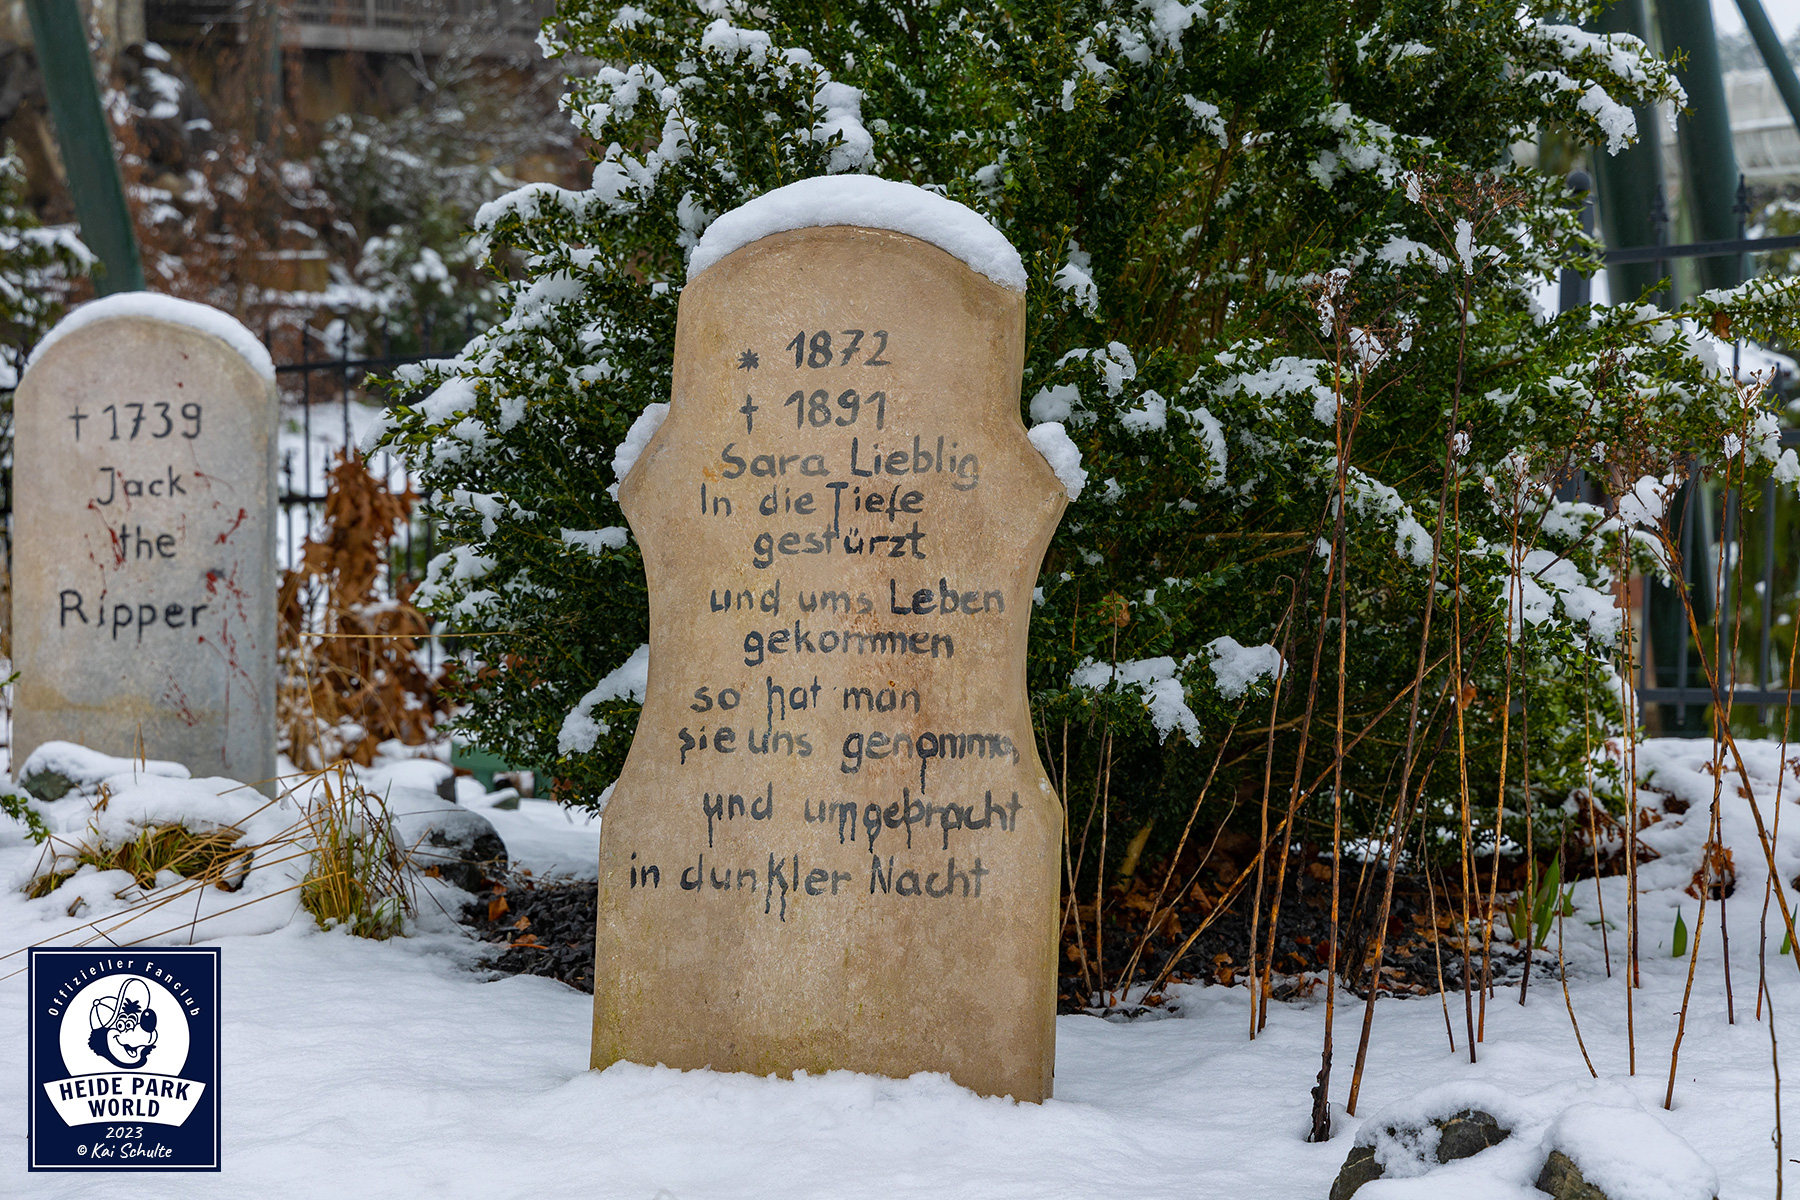 † 1739
Jack
the
Ripper
* 1872
† 1891
Sara Lieblig
In die Tiefe
gestürzt
und ums Leben
gekommen
so hat man
sie uns genomme,
und umgebracht
in dunkler Nacht
Offizieller Fanclub
HEIDE PARK
WORLD
2023
© Kai Schulte